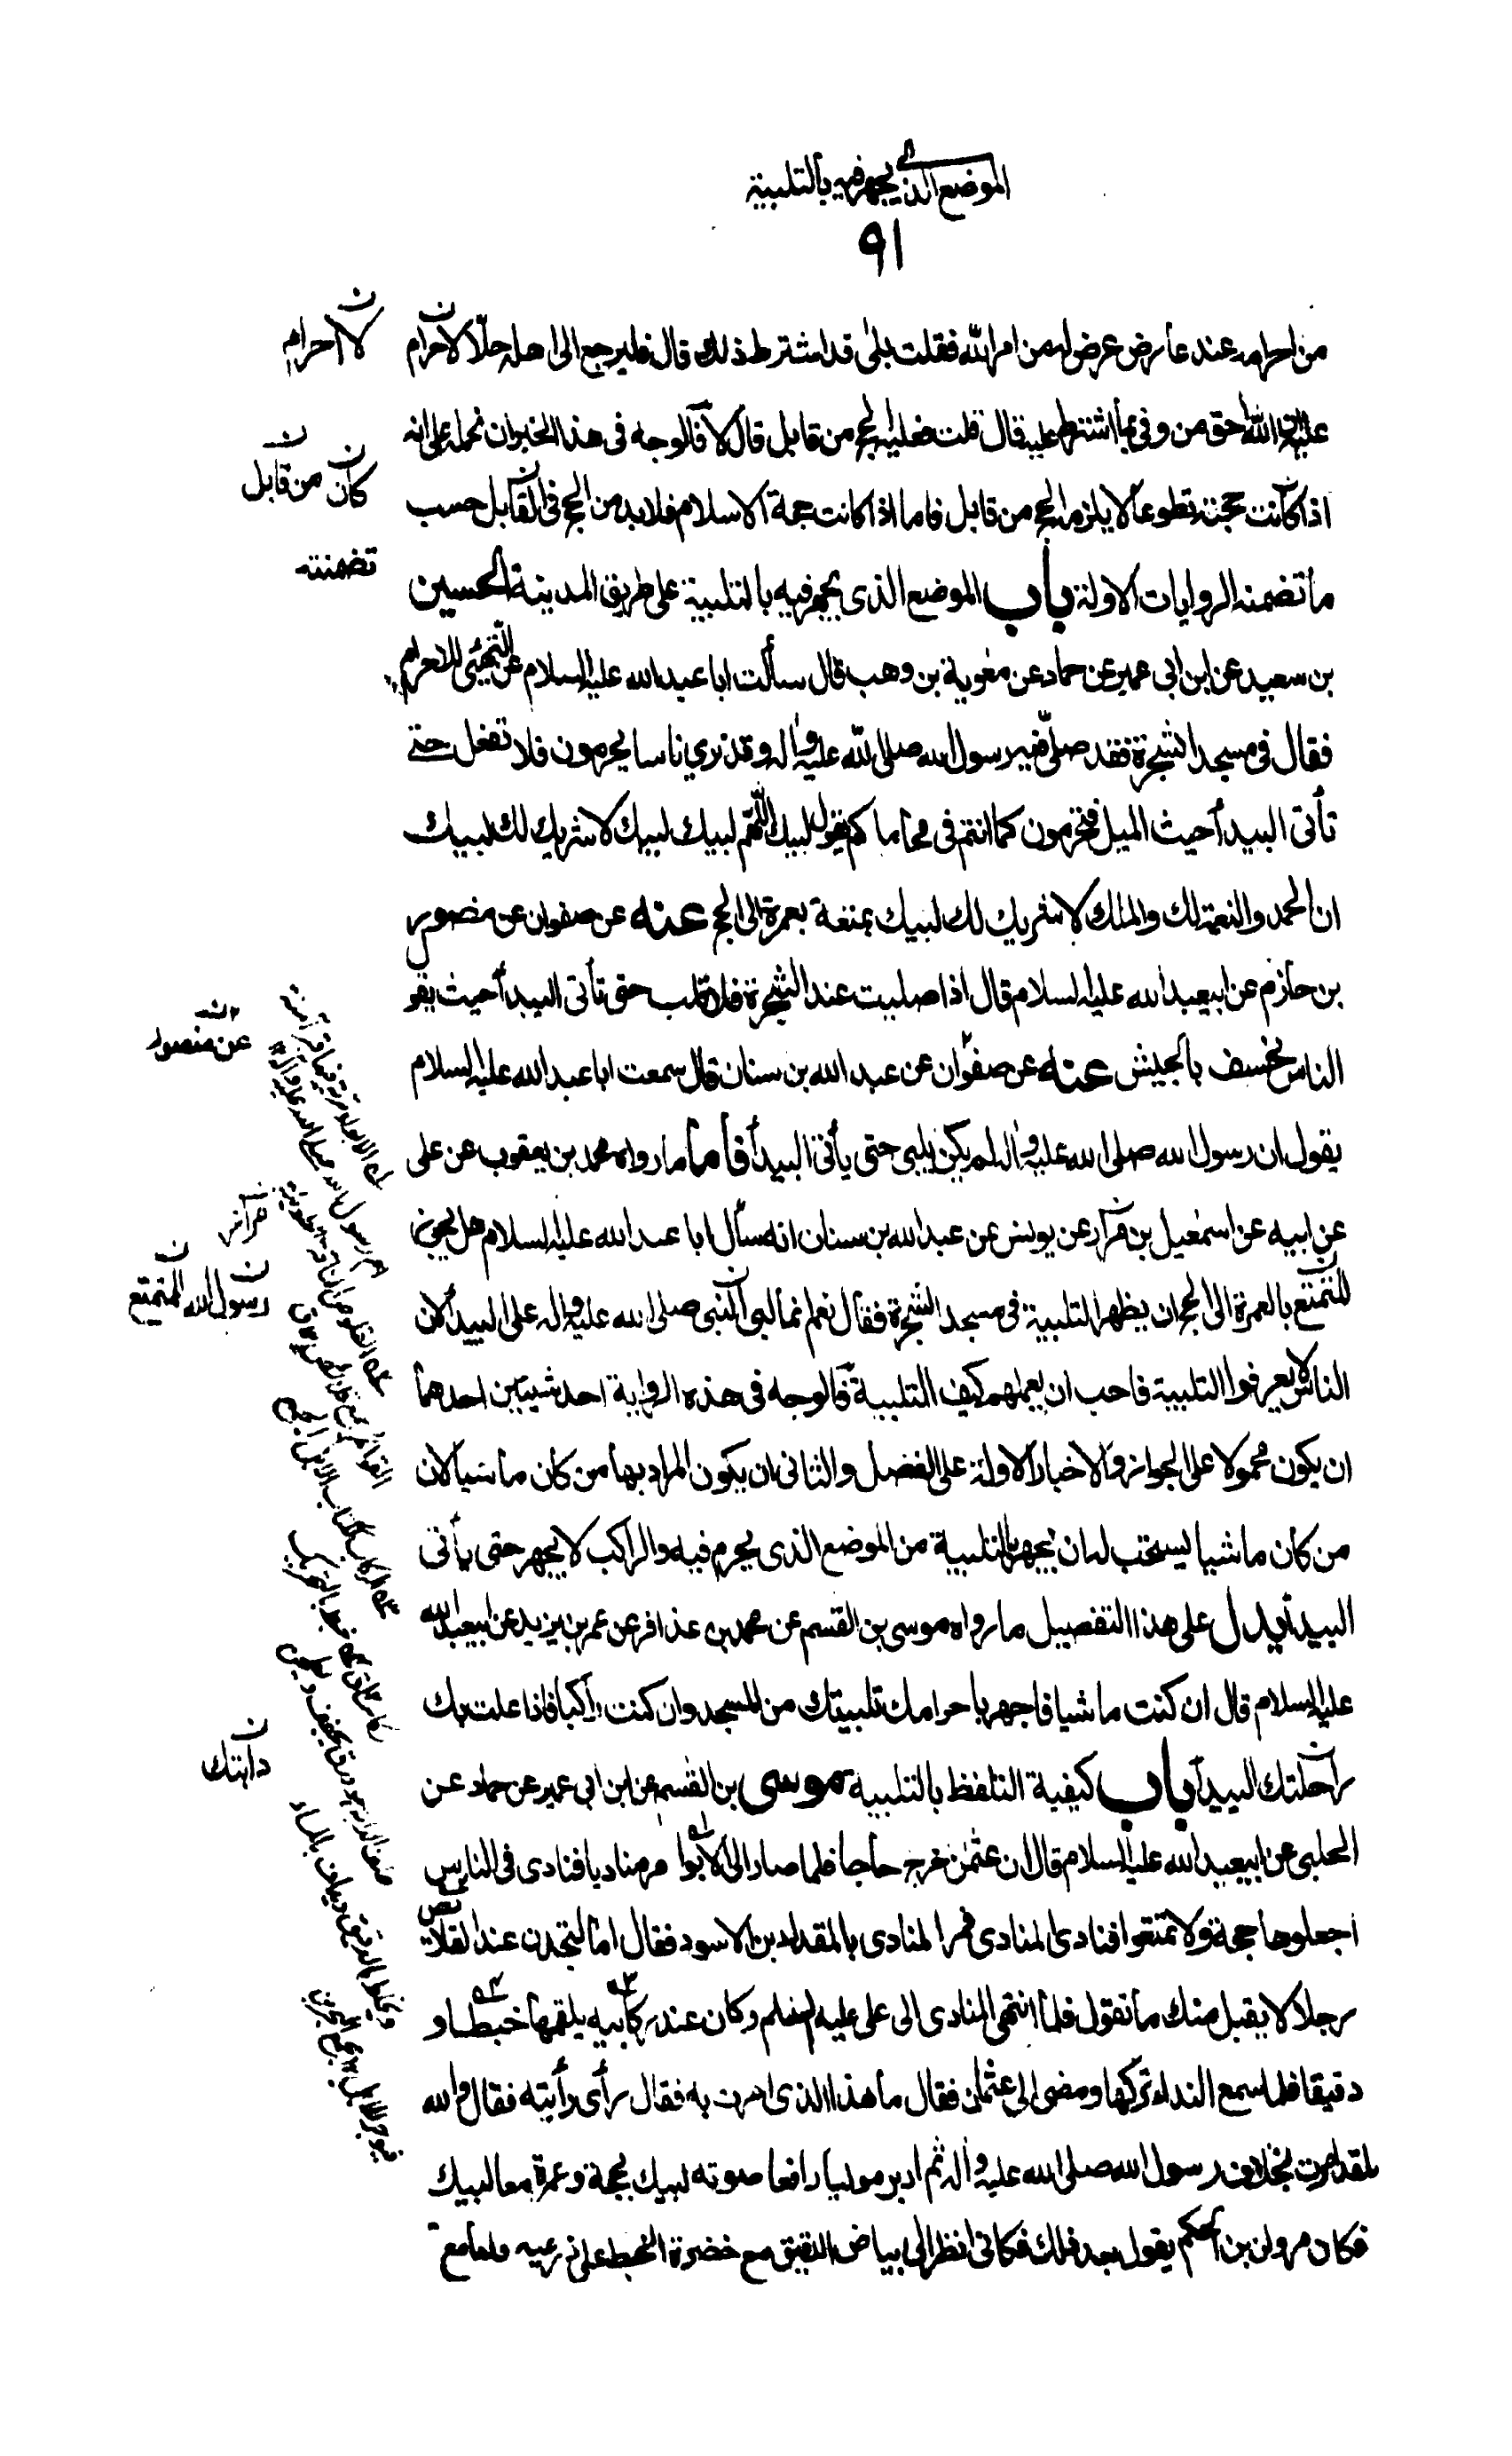 الموضع الذي يجهر فيه بالتلبية
٩١
من احرامه عند عارض عرض له من امر الله فقلت بلى قد اشترط ذلك قال فليرجع الى اهله حلّا لا احرام
عليه ان الله احق من وفى بما اشترط عليه قال قلت فعليه الحج من قابل قال لا فالوجه فى هذا الخبر ان نحمله على انه
اذا كانت حجته تطوعا لا يلزمه الحج من قابل فاما اذا كانت حجة الاسلام فلا بد من الحج فى القابل حسب
ما تضمنه الروايات الاولة باب الموضع الذى يجهر فيه بالتلبية على طريق المدينة الحسين
بن سعيد عن ابن ابى عمير عن حماد عن معوية بن وهب قال سألت ابا عبد الله عليه السلام عن التهيّئ للاحرام
فقال فى مسجد الشجرة فقد صلّى فيه رسول الله صلى الله عليه واله وقد ترى ناسا يحرمون فلا تفعل حتى
تأتى البيداء حيث الميل فتحرمون كما انتم فى محاملكم تقول لبيك اللهم لبيك لبيك لا شريك لك لبيك
ان الحمد والنعمة لك والملك لا شريك لك لبيك بمتعة بعمرة الى الحج عنه عن صفوان عن منصور
بن حازم عن ابيعبد الله عليه السلام قال اذا صليت عند الشجرة فلا تلب حتى تأتى البيداء حيث يقو
الناس يخسف بالجيش عنه عن صفوان عن عبد الله بن سنان قال سمعت ابا عبد الله عليه السلام
يقول ان رسول الله صلى الله عليه واله لم يكن يلبى حتى يأتى البيداء فأما ما رواه محمد بن يعقوب عن على
عن ابيه عن اسمعيل بن مرار عن يونس عن عبد الله بن سنان انه سأل ابا عبد الله عليه السلام هل يجوز
للمتمتع بالعمرة الى الحج ان يظهر التلبية فى مسجد الشجرة فقال نعم انما لبى النبى صلى الله عليه واله على البيداء لان
الناس لا يعرفوا التلبية فاحب ان يعلمهم كيف التلبية فالوجه فى هذه الرواية احد شيئين احدهما
ان يكون محمولا على الجواز والاخبار الاولة على الفضل والثانى ان يكون المراد بها من كان ماشيا لان
من كان ماشيا يستحب له ان يجهر بالتلبية من الموضع الذى يحرم فيه والراكب لا يجهر حتى يأتى
البيداء يدل على هذا التفصيل ما رواه موسى بن القسم عن محمد بن عذافر عن عمر بن يزيد عن ابيعبد الله
عليه السلام قال ان كنت ماشيا فاجهر باحرامك وتلبيتك من المسجد وان كنت راكبا فاذا علت بك
راحلتك البيداء باب كيفية التلفظ بالتلبية موسى بن القسم عن ابن ابى عمير عن حماد عن
الحلبى عن ابيعبد الله عليه السلام قال ان عثمن خرج حاجا فلما صار الى الابوا امر مناديا فنادى فى الناس
اجعلوها حجة ولا تمتعوا فنادى المنادى فمر المنادى بالمقداد بن الاسود فقال اما لتجدن عند القلائص
رجلا لا يقبل منك ما تقول فلما انتهى المنادى الى على عليه السلم وكان عند ركابيه يلقمها خبطا و
دقيقا فلما سمع النداء تركها ومضى الى عثمان فقال ما هذا الذى امرت به فقال رأى رأيته فقال والله
لقد امرت بخلاف رسول الله صلى الله عليه واله ثم ادبر موليا رافعا صوته لبيك بحجة وعمرة معا لبيك
فكان مروان بن الحكم يقول بعد ذلك فكانى انظر الى بياض الدقيق مع خضرة الخبط على ذراعيه واما مع
لا احرام
كان
من قابل
تضمنته
عن منصور
رسول الله
المتمتع
دابتك